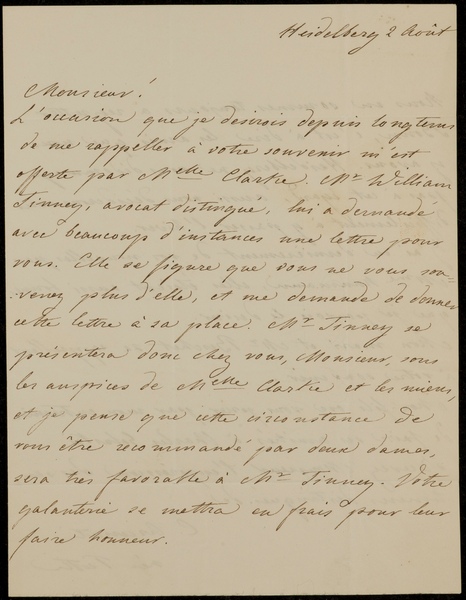 Heidelberg 2 Août
Monsieur!
L'occasion que je desirois depuis longtems
de me rappeller à votre souvenir m'est
offerte par Melle Clarke. Mr William
Tinney, avocat distingué, lui a demandé
avec beaucoup d'instances une lettre pour
vous. Elle se figure que vous ne vous sou-
venez plus d'elle, et me demande de donner
cette lettre à sa place. Mr Tinney se
présentera donc chez vous, Monsieur, sous
les auspices de Melle Clarke et les miens,
et je pense que cette circonstance de
vous être recommandé par deux dames,
sera très favorable à Mr Tinney. Votre
galanterie se mettra en frais pour leur
faire honneur.